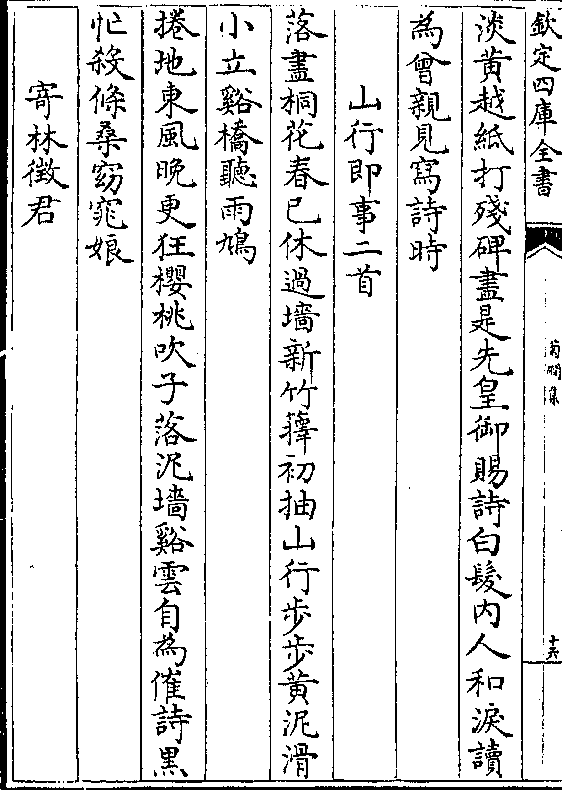 欽定四庫全書
菊磵集
十六
淡黄越紙打殘碑盡是先皇御賜詩白髮内人和淚讀
為曾親見寫詩時
山行即事二首
落盡桐花春已休過墻新竹籜初抽山行步步黄泥滑
小立谿橋聽雨鳩
捲地東風晚更狂櫻桃吹子落泥墻谿雲自為催詩黒
忙殺條桑窈窕娘
寄林徴君